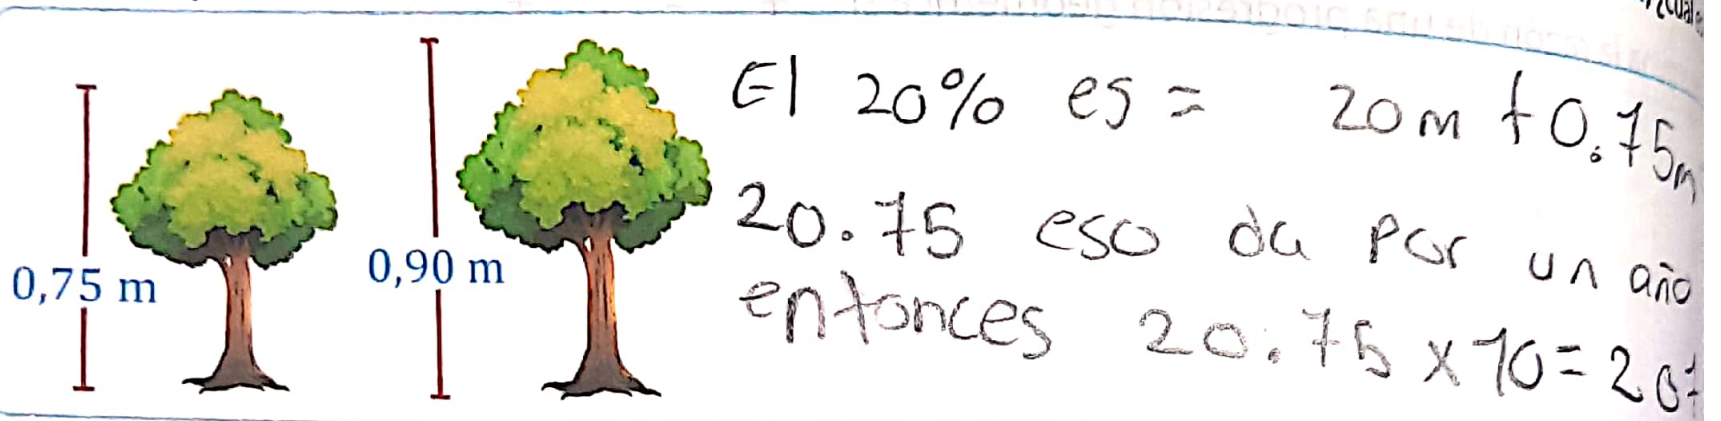 0,75 m
0,90 m
El 20% es = 20m + 0.75m
20.75 eso da por un año
entonces 20.75 x 10 = 207